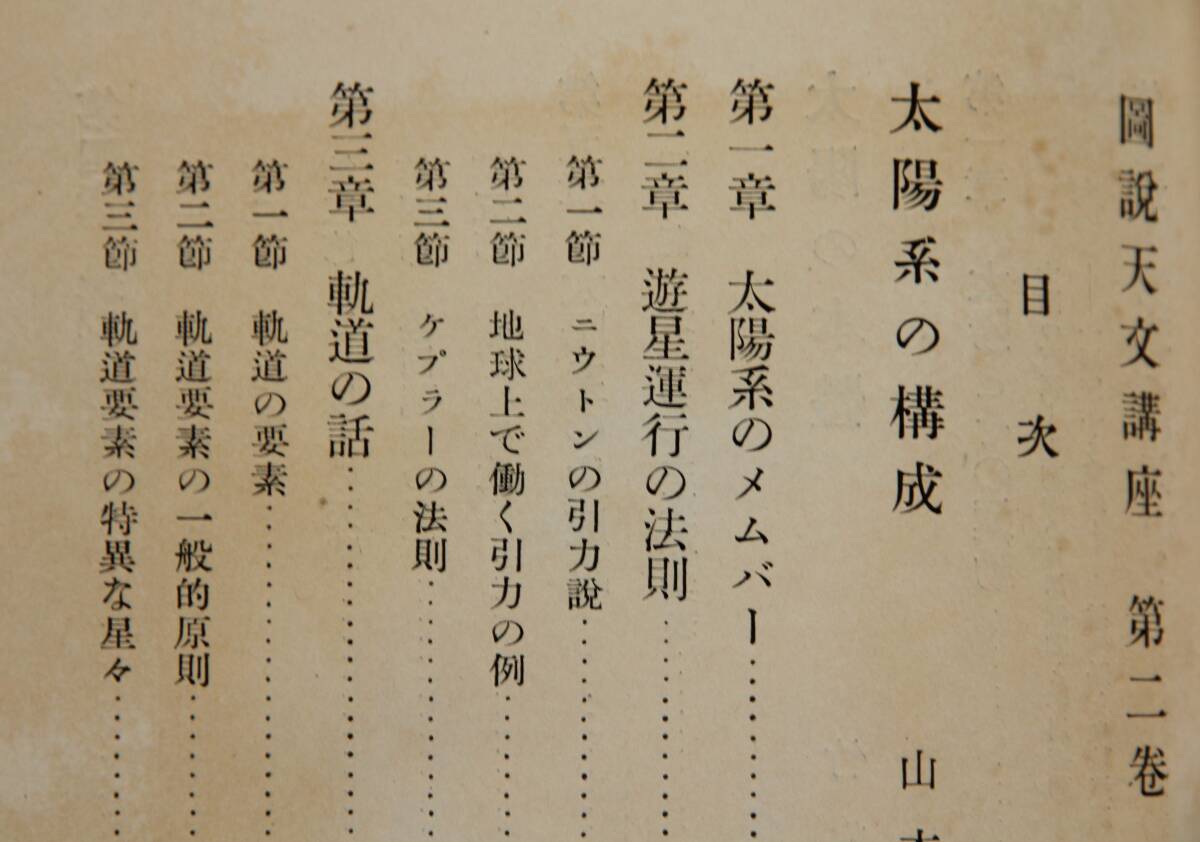 圖說天文講座 第二卷
目次
太陽系の構成 山
第一章 太陽系のメムバー……………
第二章 遊星運行の法則……………
第一節 ニウトンの引力說……………
第二節 地球上で働く引力の例……………
第三節 ケプラーの法則……………
第三章 軌道の話……………
第一節 軌道の要素……………
第二節 軌道要素の一般的原則……………
第三節 軌道要素の特異な星々……………